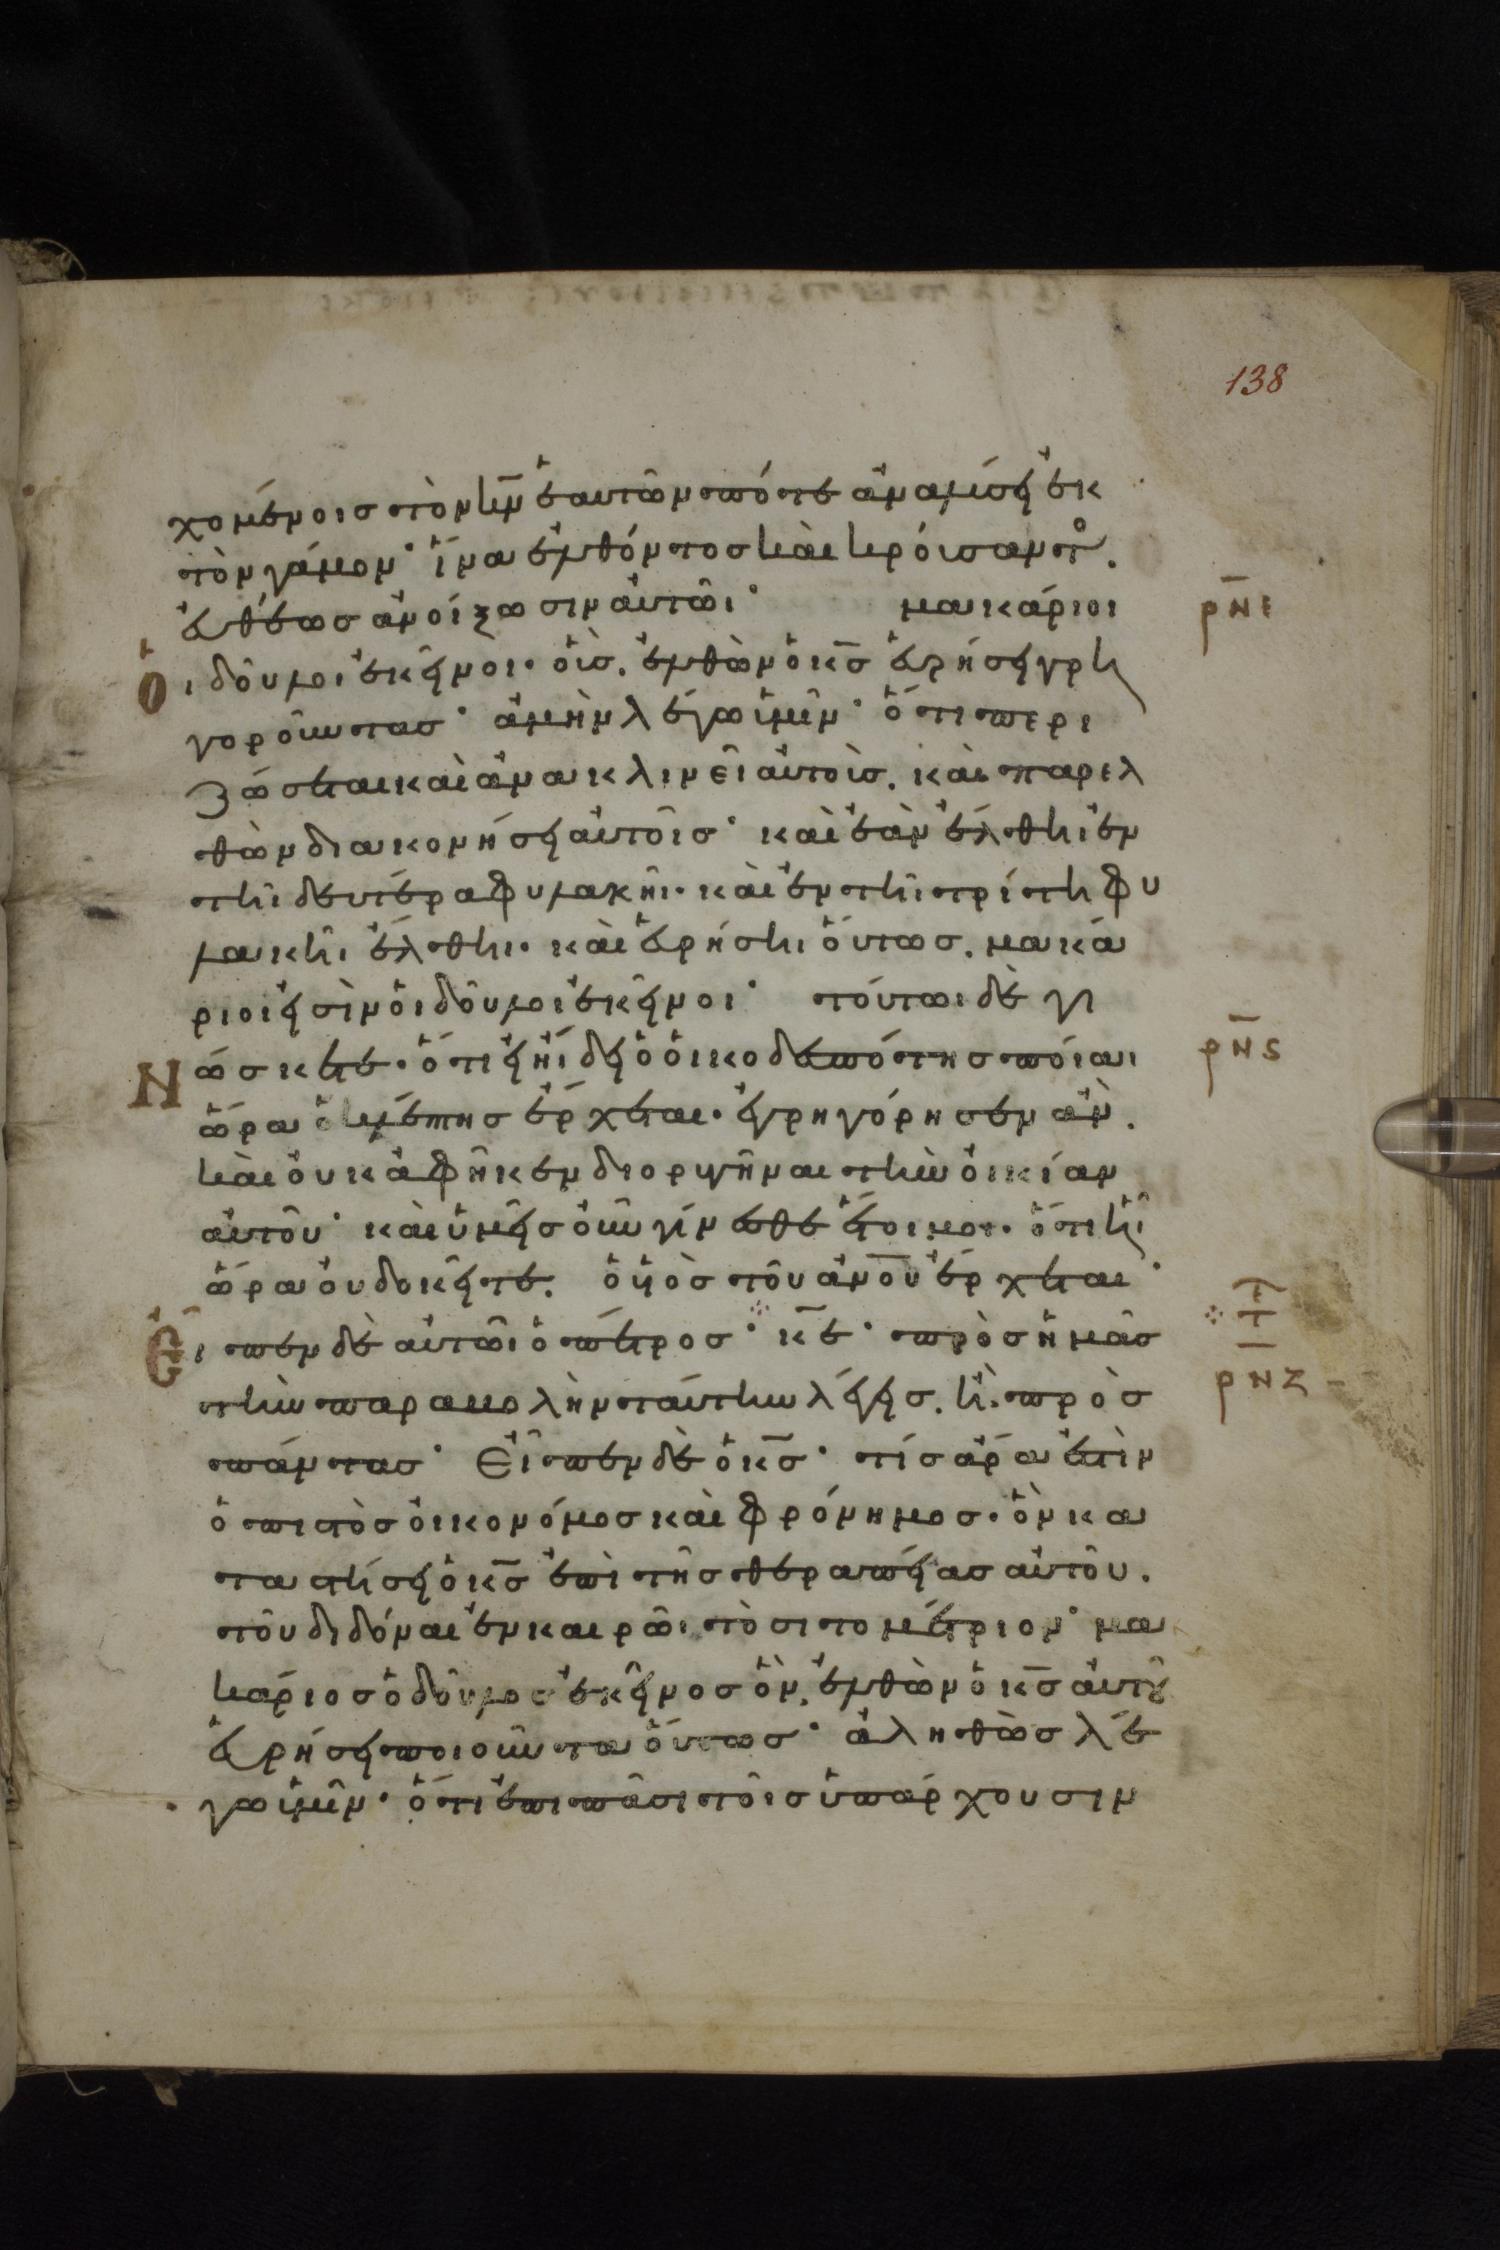 138
χομένοις τὸν κν̅ ἑαυτῶν πότε ἀναλύσει ἐκ
τῶν γάμων· ἵνα ἐλθόντος καὶ κρούσαντο.
εὐθέως ἀνοίξωσιν αὐτῶι· μακάριοι
ρν̅ε
οἱ δοῦλοι ἐκεῖνοι· οὓς ἐλθὼν ὁ κς̅ εὑρήσει γρη
γοροῦντας· ἀμὴν λέγω ὑμῖν· ὅτι περι
ζώσεται καὶ ἀνακλινεῖ αὐτοὺς. καὶ παρελ
θὼν διακονήσει αὐτοῖς· καὶ ἐὰν ἔλθηι ἐν
τῆι δευτέρα φυλακῆι· καὶ ἐν τῆι τρίτη φυ
λακῆι ἔλθηι· καὶ εὑρήσηι οὕτως. μακά
ριοι εἰσὶν οἱ δοῦλοι ἐκεῖνοι· τοῦτωι δὲ γι
νώσκετε· ὅτι εἰ ἤιδει ὁ οἰκοδεσπότης ποίαι
ρν̅ς
ὥρα ὁ κλέπτης ἔρχεται· ἐγρηγόρησεν ἂν.
καὶ οὐκ ἀφῆκεν διορυγῆναι τὴν οἰκίαν
αὐτοῦ· καὶ ὑμεῖς οὖν γίνεσθε ἕτοιμοι· ὅτι ἧι
ὥρα οὐ δοκεῖτε. ὁ υἱὸς τοῦ ἀνο̅υ̅ ἔρχεται·
εἶπεν δὲ αὐτῶι ὁ πέτρος· κε̅· πρὸς ἡμᾶς
ρν̅ζ
τὴν παραβολὴν ταύτην λέγεις. ἢ πρὸς
πάντας· Εἶπεν δὲ ὁ κς̅· τίς ἄρα ἐστὶν
ὁ πιστὸς οἰκονόμος καὶ φρόνημος· ὃν κα
ταστήσει ὁ κς̅ ἐπὶ τῆς θεραπείας αὐτοῦ.
τοῦ διδόναι ἐν καιρῶι τὸ σιτομέτριον· μα
κάριος ὁ δοῦλος ἐκεῖνος ὃν ἐλθὼν ὁ κς̅ αὐτοῦ
εὑρήσει ποιοῦντα οὕτως· ἀληθῶς λέ
γω ὑμῖν· ὅτι ἐπι πᾶσι τοῖς ὑπάρχουσιν